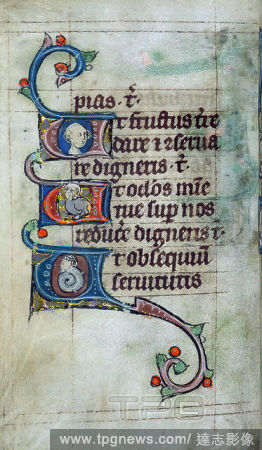 pias. t̄.
Ut fructus t̄re
dare ⁊ ꝯserua
re digneris. t̄.
Ut oclos mīe
tue sup nos
reducē digneris. t̄.
Ut obsequiū
seruitutis
TPG
www.tpgnews.com/ 達志影像